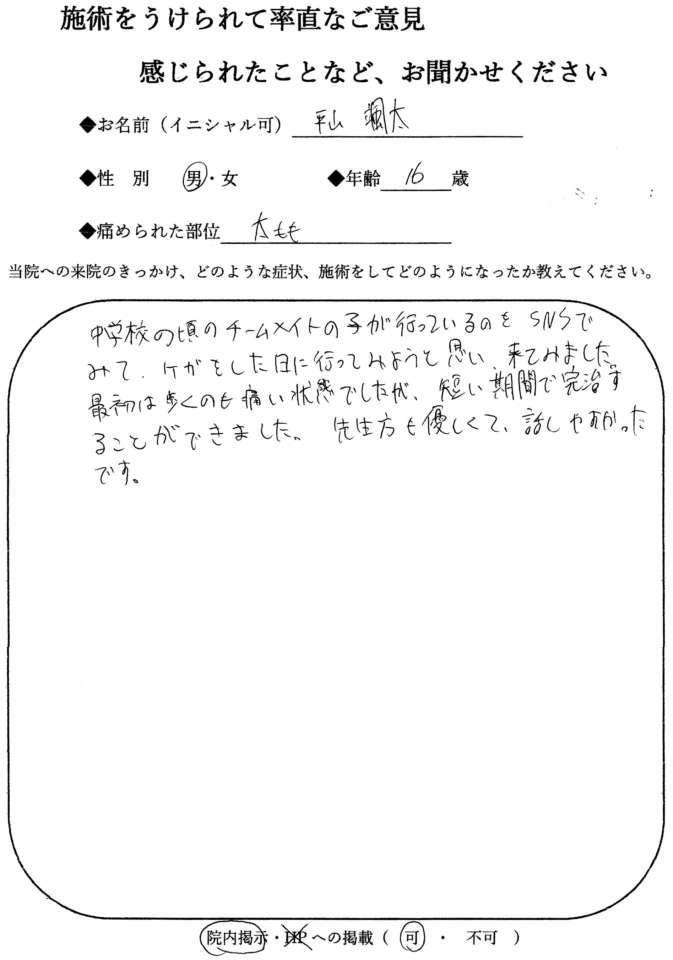 施術をうけられて率直なご意見
感じられたことなど、お聞かせください
◆お名前（イニシャル可） 平山 颯太
◆性 別 男・女 ◆年齢 16 歳
◆痛められた部位 太もも
当院への来院のきっかけ、どのような症状、施術をしてどのようになったか教えてください。
中学校の頃のチームメイトの子が行っているのを SNSで
みて、ケガをした日に行ってみようと思い、来てみました。
最初は歩くのも痛い状態でしたが、短い期間で完治す
ることができました。 先生方も優しくて、話しやすかった
です。
院内掲示・HPへの掲載（ 可 ・ 不可 ）